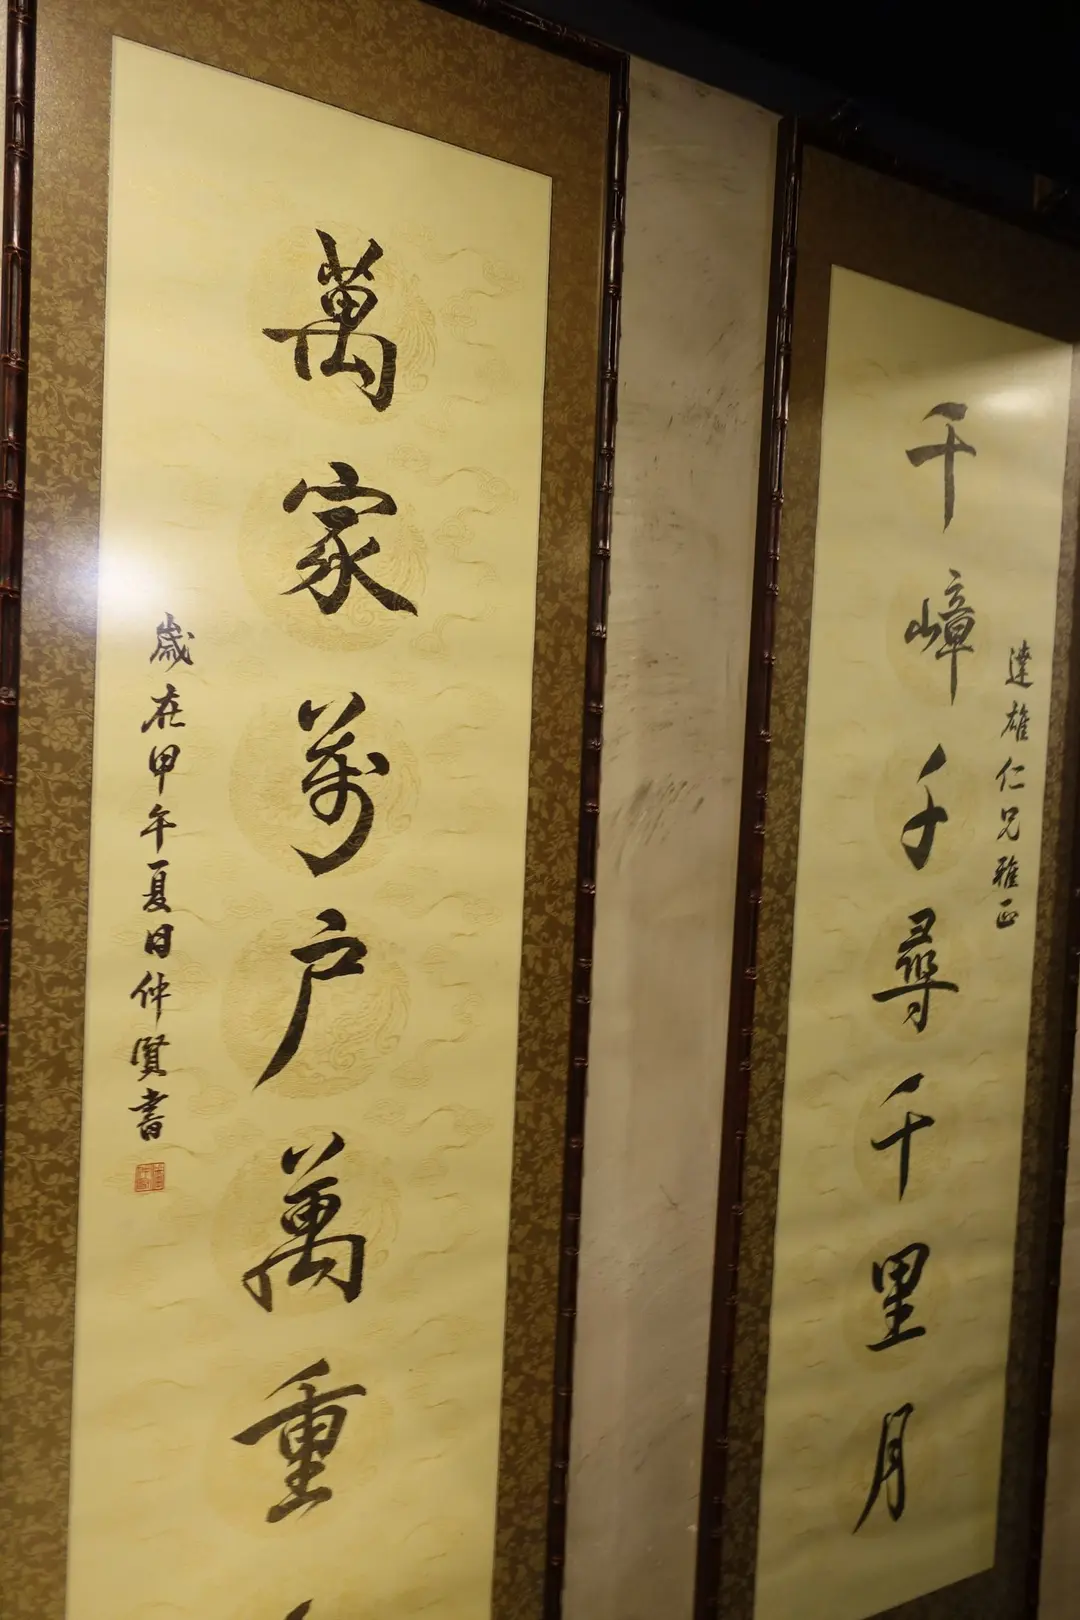 達雄仁兄雅正
千嶂千尋千里月
萬家萬户萬重
歲在甲午夏日仲賢書